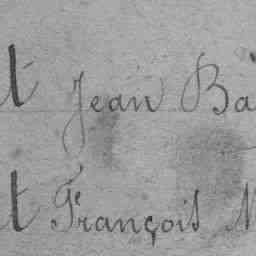 t Jean Ba
t François M